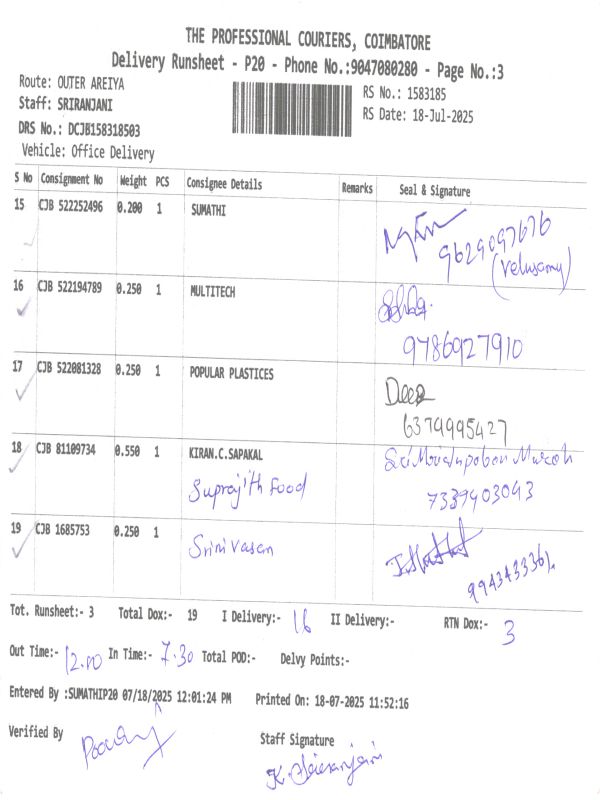 THE PROFESSIONAL COURIERS, COIMBATORE
Delivery Runsheet - P20 - Phone No.:9047080280 - Page No.:3
Route: OUTER AREIYA
RS No.: 1583185
Staff: SRIRANJANI
RS Date: 18-Jul-2025
DRS No.: DCJB158318503
Vehicle: Office Delivery
S No Consignment No Weight PCS Consignee Details Remarks Seal & Signature
15 CJB 522252496 0.200 1 SUMATHI
9629097676
(Velusamy)
16 CJB 522194789 0.250 1 MULTITECH
9786927910
17 CJB 522081328 0.250 1 POPULAR PLASTICES
6379995427
18 CJB 81109734 0.550 1 KIRAN.C.SAPAKAL
Suprajith Food
7339403043
19 CJB 1685753 0.250 1
Srinivasan
Tot. Runsheet:- 3 Total Dox:- 19 I Delivery:- 16 II Delivery:- RTN Dox:- 3
Out Time:- 12.00 In Time:- 7.30 Total POD:- Delvy Points:-
Entered By :SUMATHIP20 07/18/2025 12:01:24 PM Printed On: 18-07-2025 11:52:16
Verified By
Staff Signature